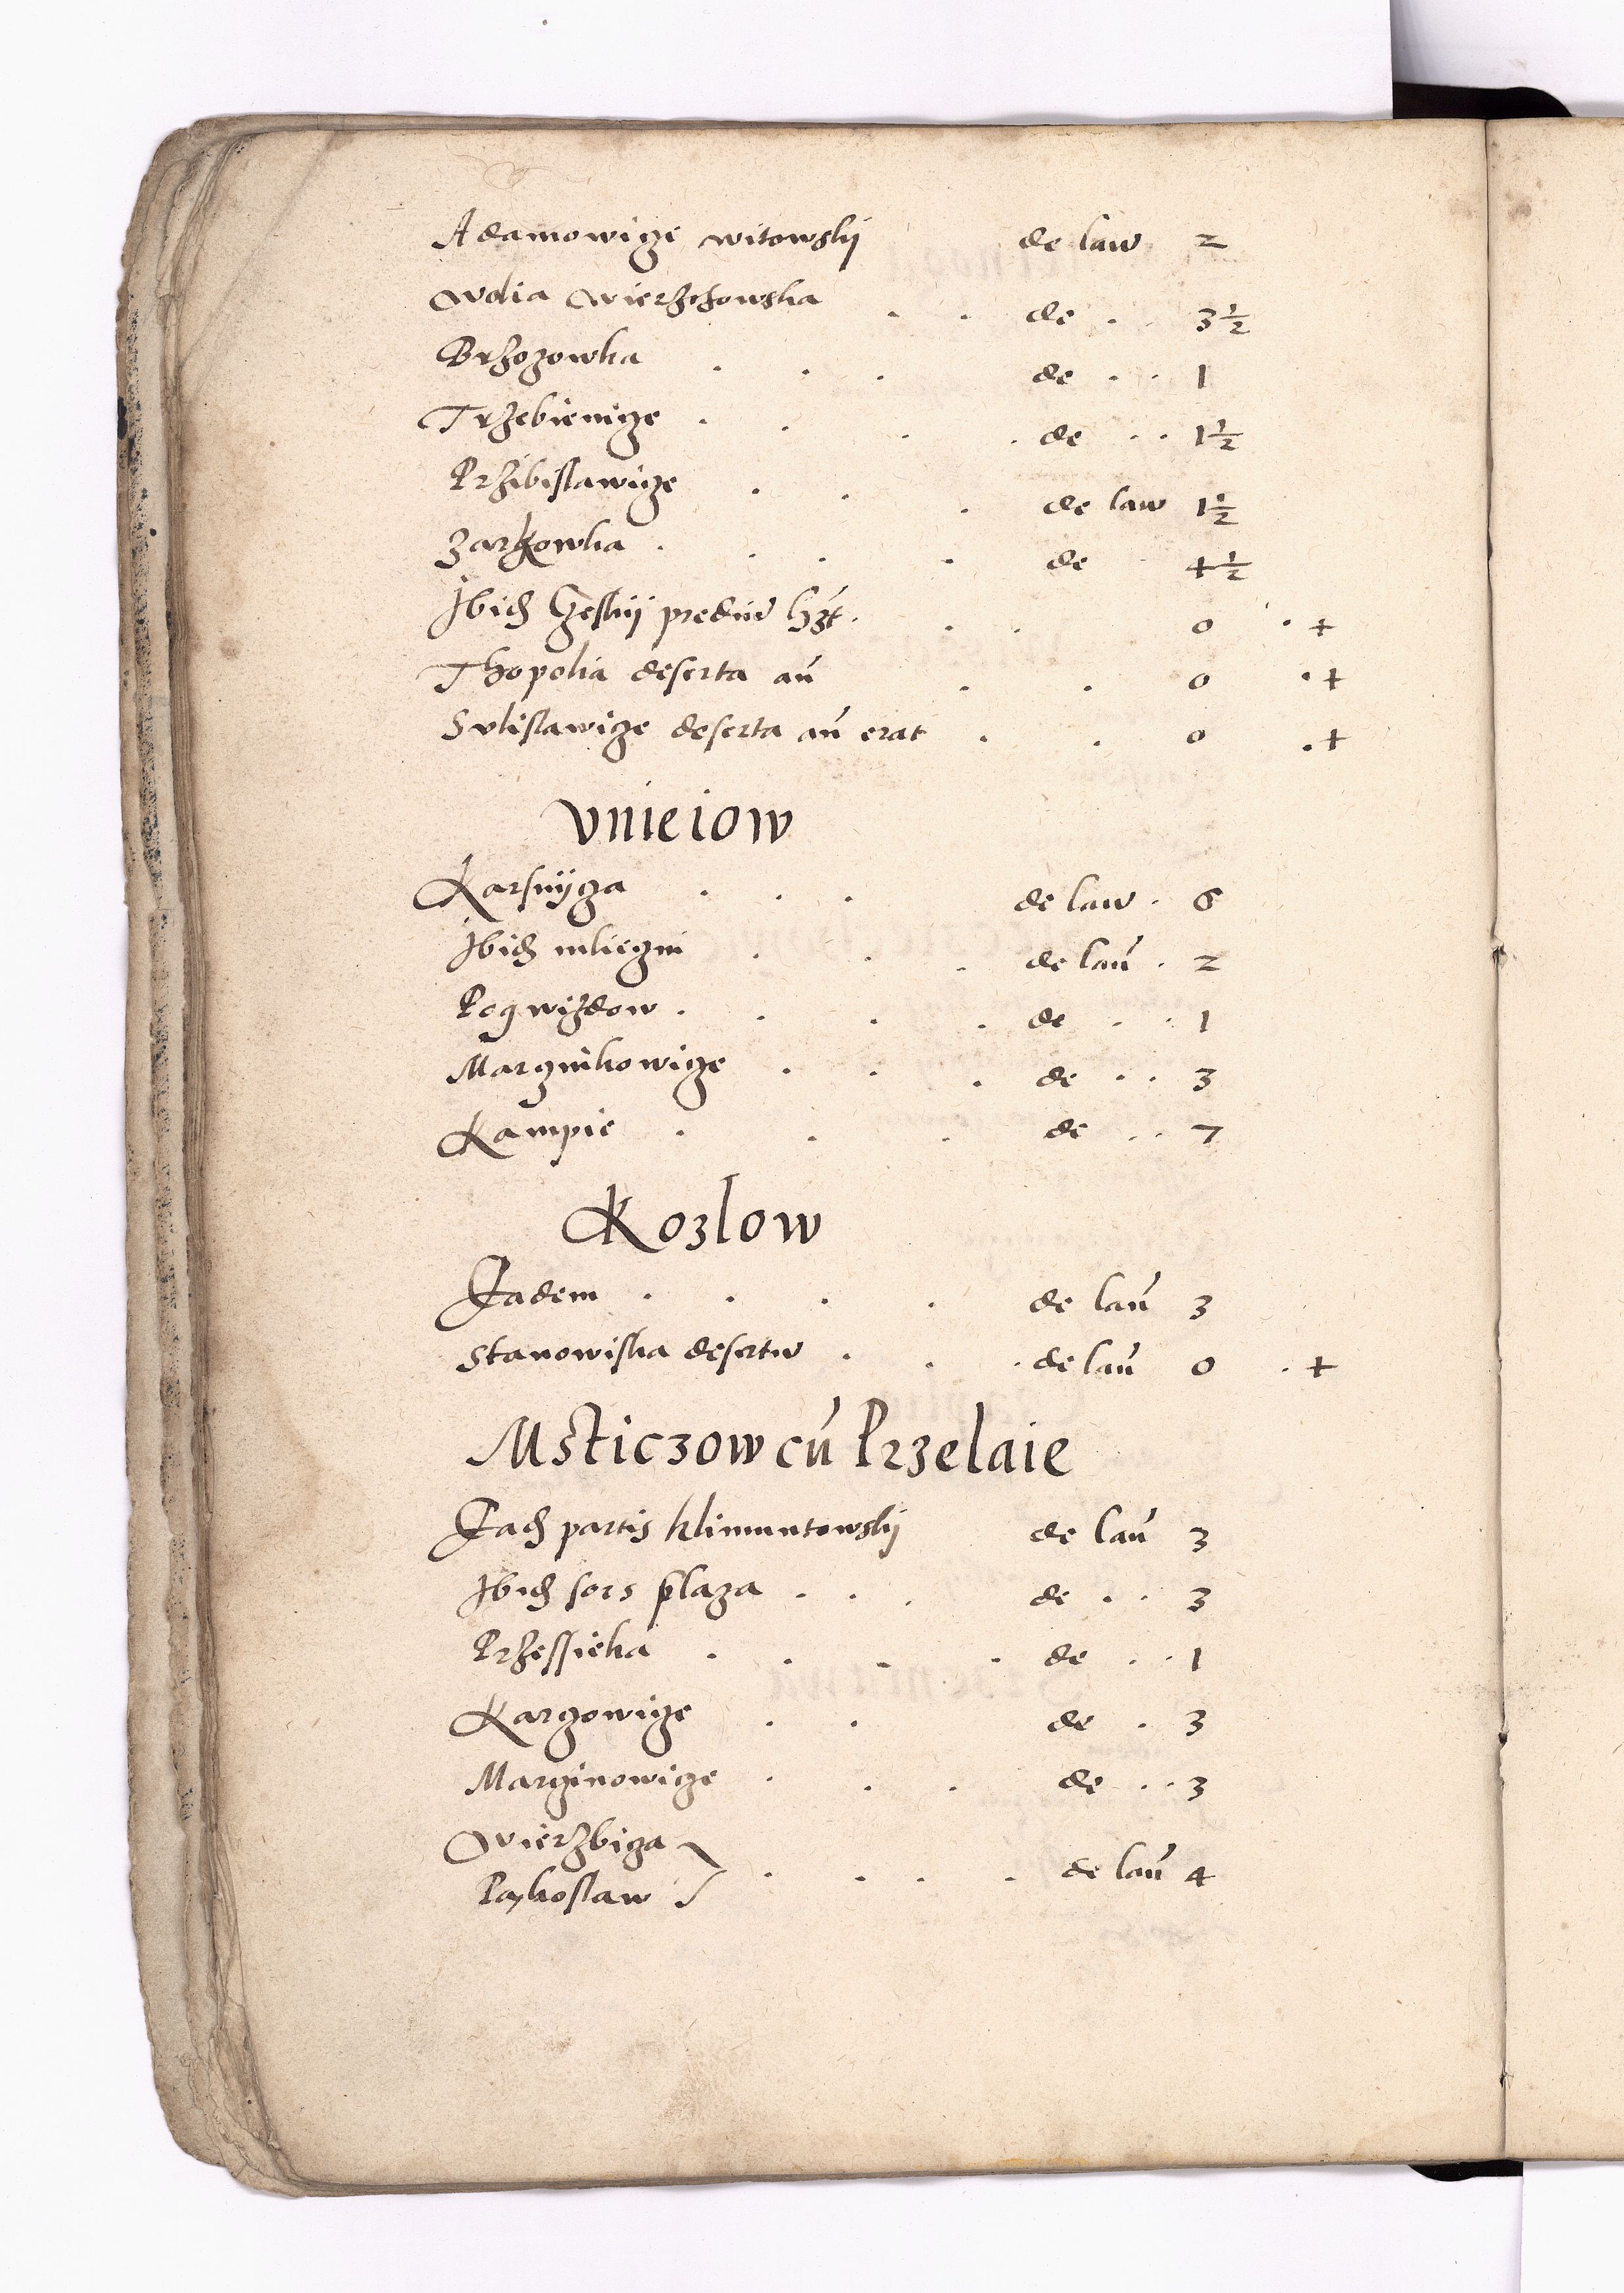 Adamowicze witowskij de law 2
Wolia Wierzchowska . . de . . 3½
Brzozowka . . . de . . 1
Trzebienicze . . . . de . . 1½
Przibislawicze . . . de law 1½
Zarkowka . . . . de . 4½
Ibid. Geskij prediu hzt . . . 0 . +
Thopolia deserta au . . 0 . +
Sulislawicze deserta au erat . . 0 . +
Vnieiow
Karsnijcza . . . de law . 6
Ibid. mliegni . . . de lau . 2
Pogwizdow . . . . . de . . 1
Marcznikowicze . . . de . . 3
Kampie . . . de . . 7
Kozlow
Eadem . . . . de lau 3
Stanowiska desertu . . . de lau 0 . +
Msticzow cu Przelaie
Ead. partis klimuntowskij de lau 3
Ibid. sors plaza . . . de . . 3
Przessieka . . . . de . . 1
Karczowicze . . de . 3
Marczinowicze . . . de . . 3
Wierzbicza
Pakoslaw . . . . de lau 4